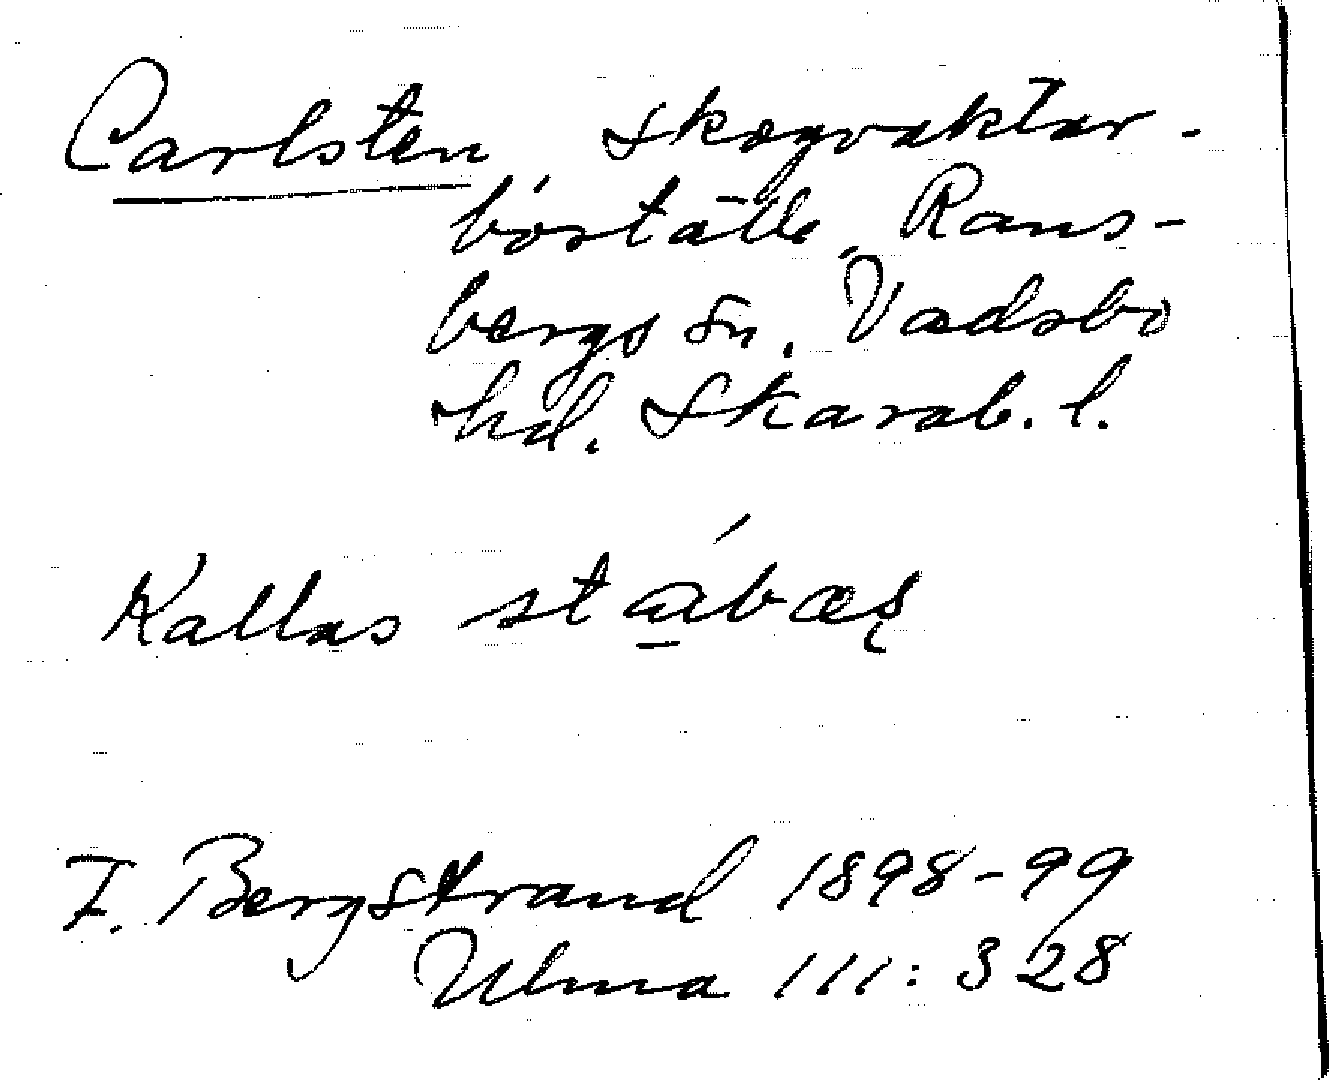 Carlsten, skogvaktar-
boställe, Rans-
bergs sn. Vadsbo
hd. Skarab. l.
Kallas
F. Bergstrand 1898-99
Ulma 111:328